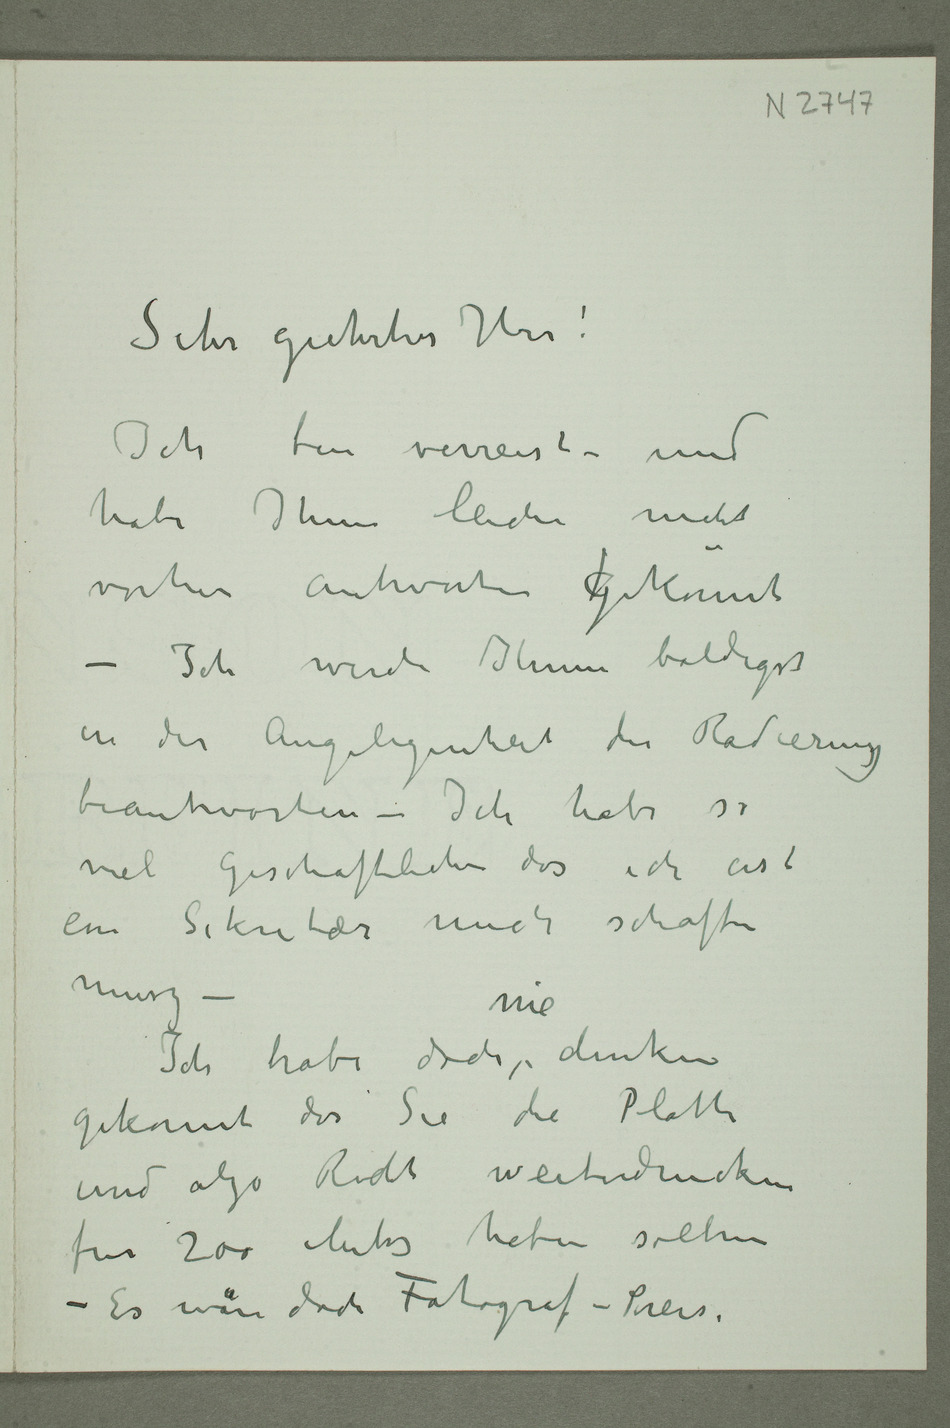 N 2747
Sehr geehrter Herr!
Ich bin verreist – und
habe Ihnen leider nicht
vorher antworten gekönnt
– Ich werde Ihnen baldigst
in der Angelegenheit der Radierung
beantworten – Ich habe so
viel Geschäftlichen das ich erst
ein Sekretær mich schaffen
musz –
nie
Ich habe doch denken
gekonnt das Sie die Platte
und also Recht weiterdrucken
für 200 Mks haben sollten
– Es wäre doch Fotograf-Preis.